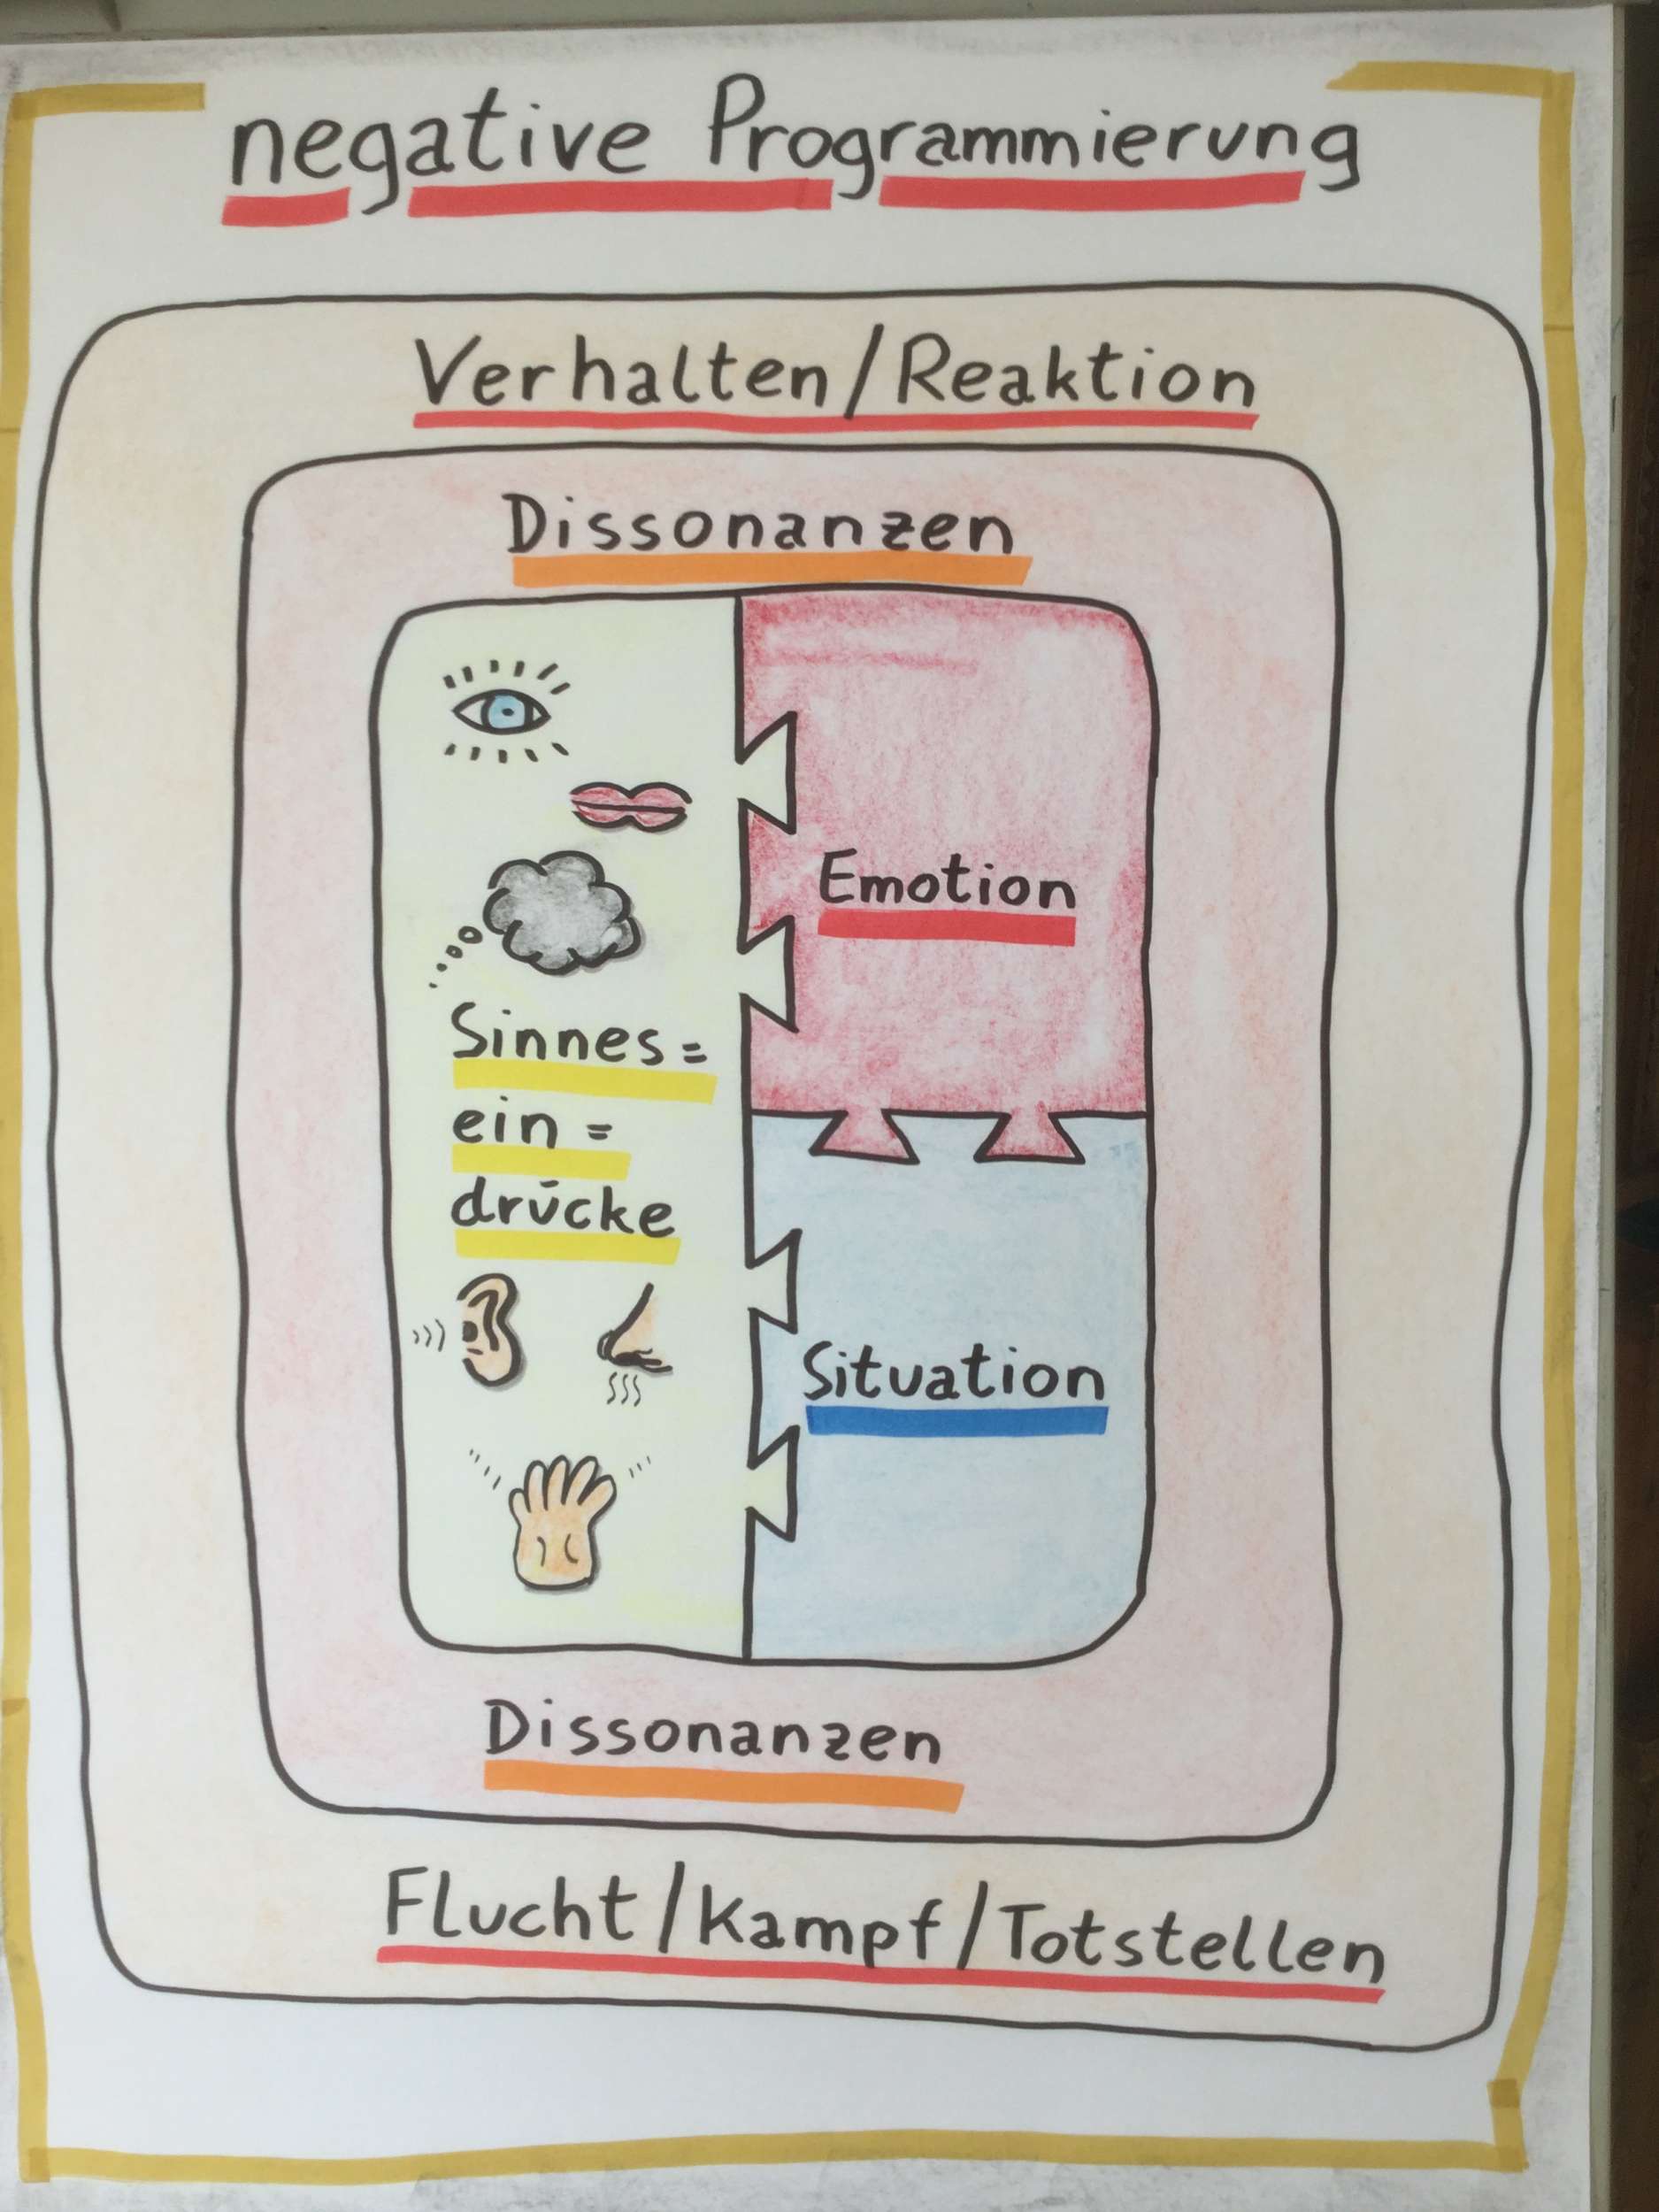 negative Programmierung
Verhalten/Reaktion
Dissonanzen
Emotion
Sinnes=
ein=
drücke
Situation
Dissonanzen
Flucht/Kampf/Totstellen